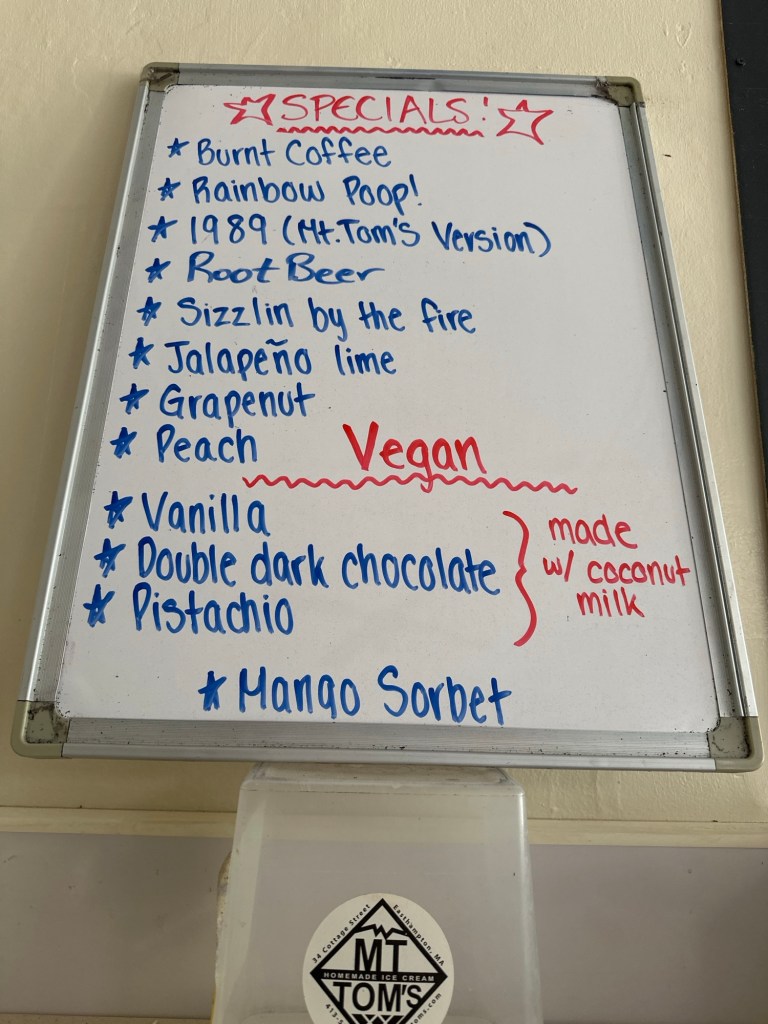 SPECIALS!
Burnt Coffee
Rainbow Poop!
1989 (Mt.Tom's Version)
Root Beer
Sizzlin by the fire
Jalapeño lime
Grapenut
Peach
Vegan
Vanilla
Double dark chocolate
Pistachio
made
w/ coconut
milk
Mango Sorbet
34 Cottage Street
Easthampton, MA
MT
HOMEMADE ICE CREAM
TOM'S